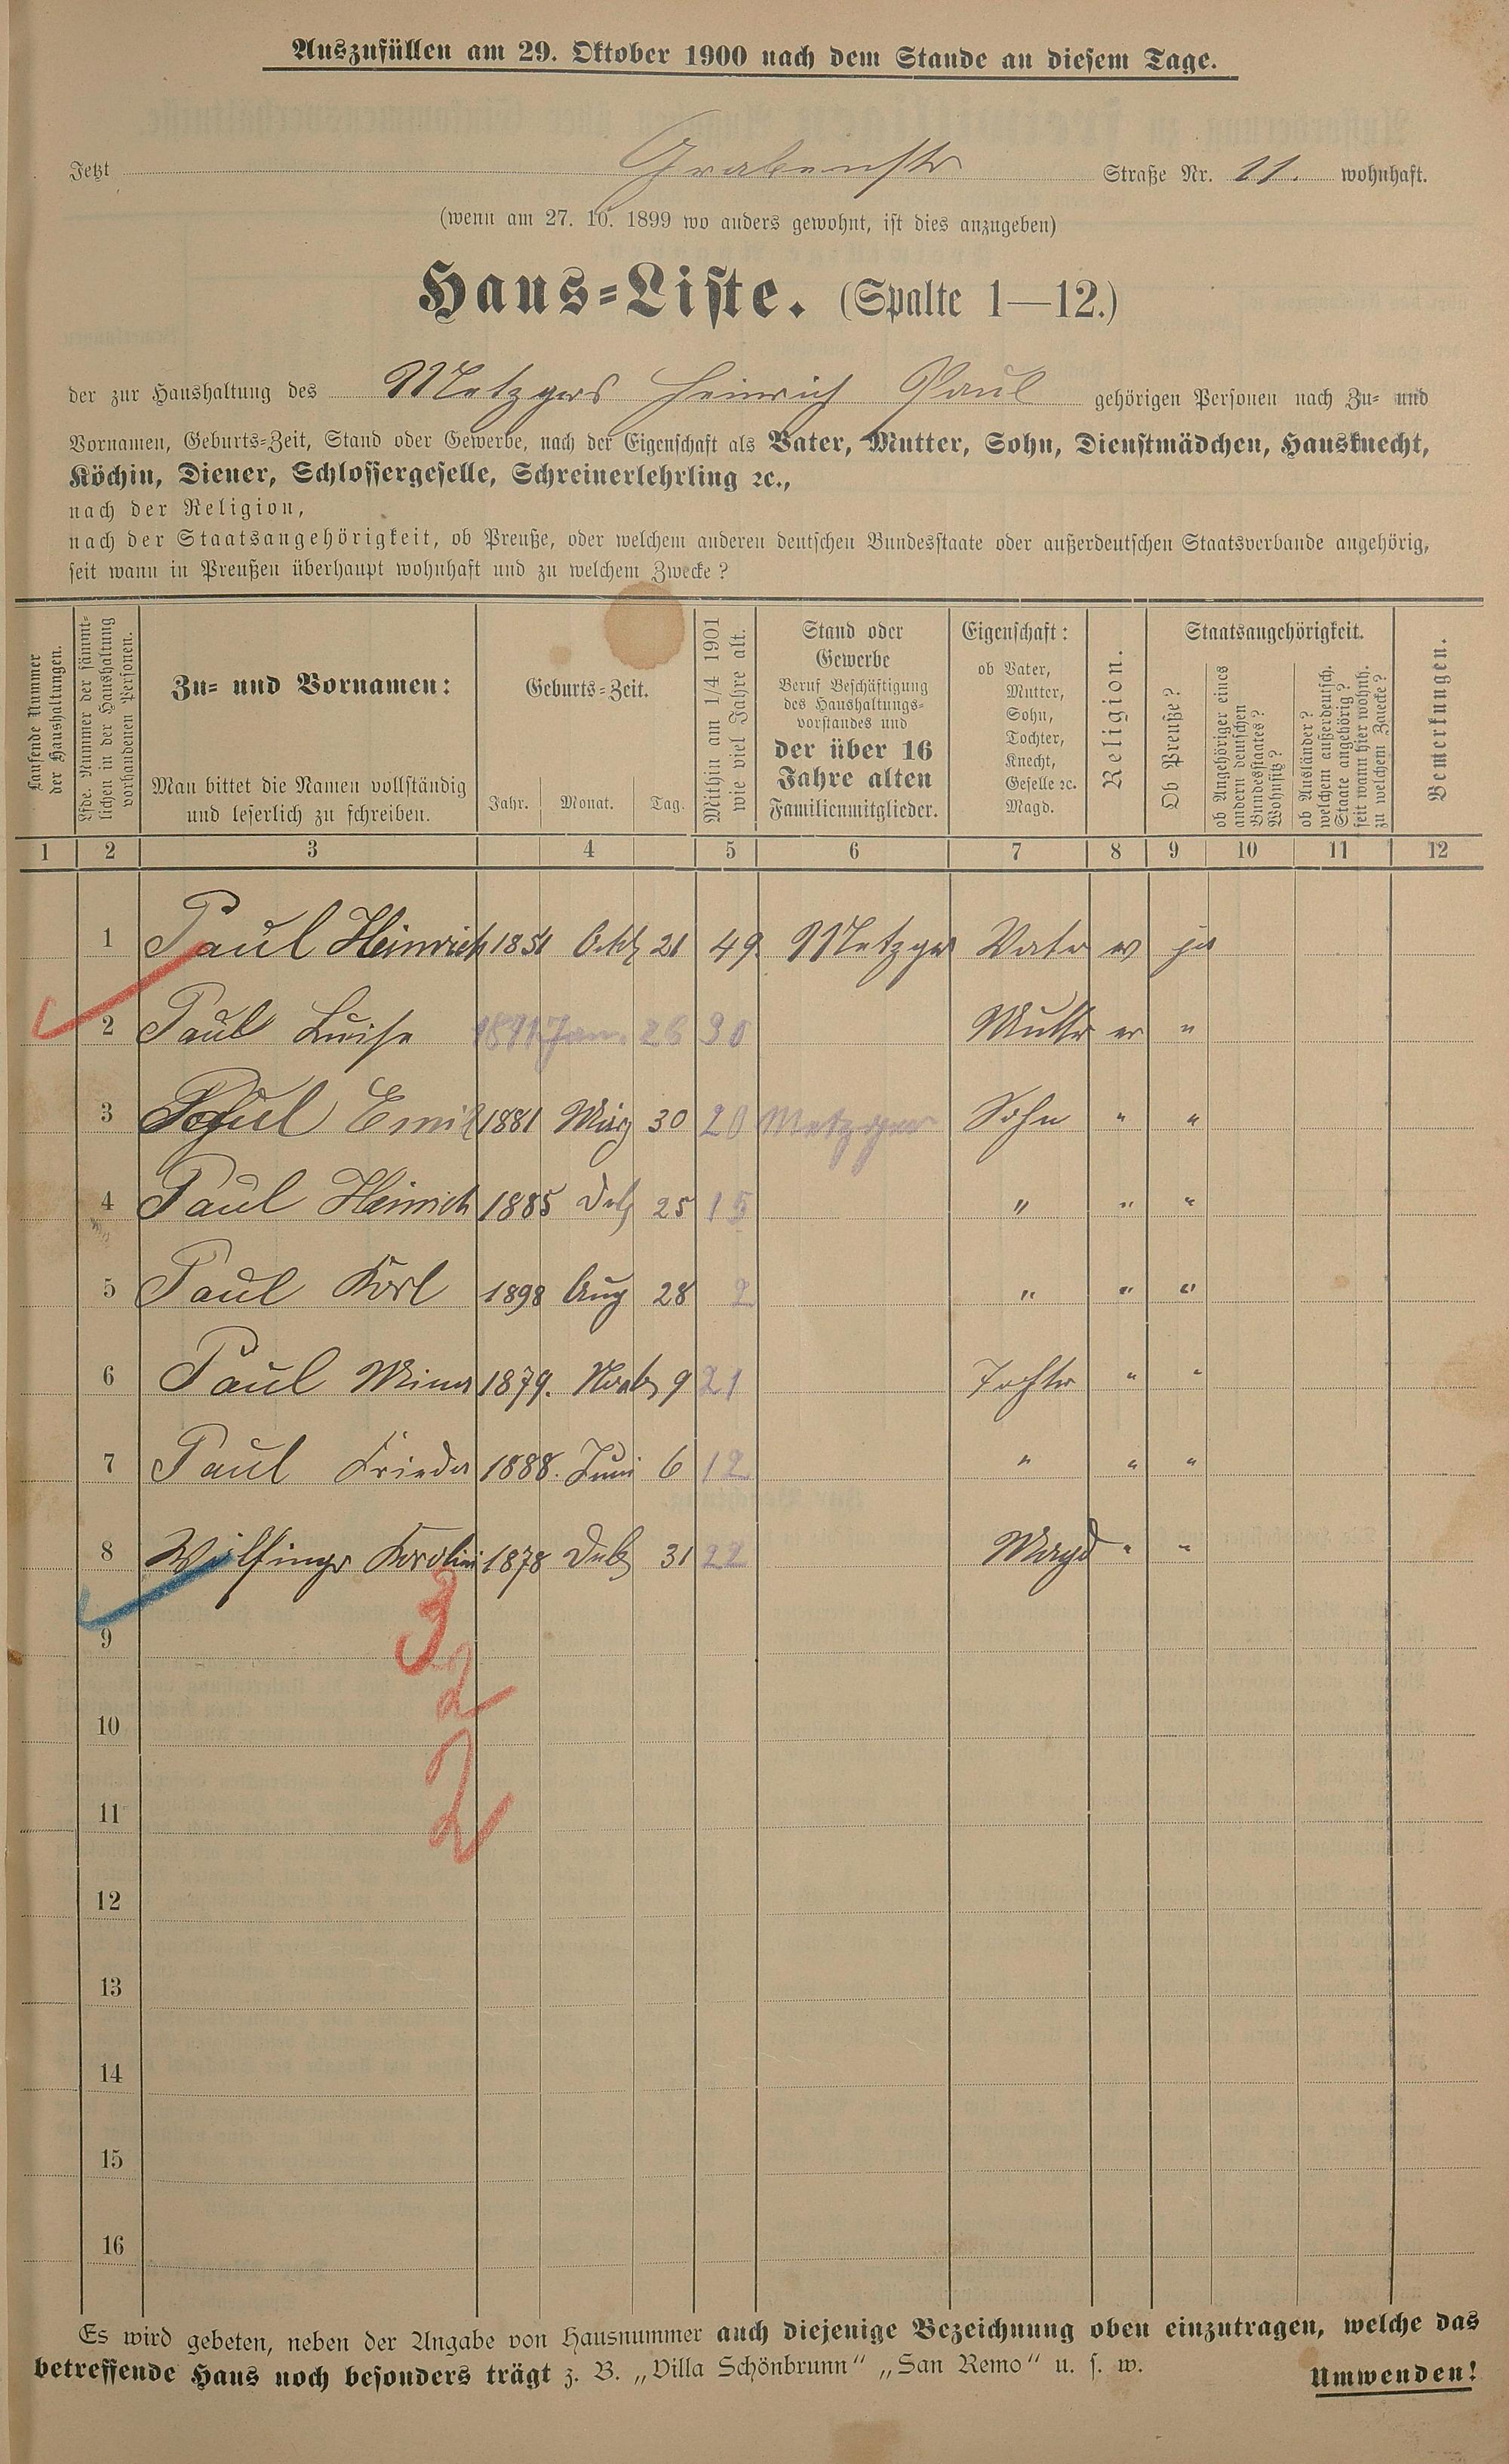 Auszufüllen am 29. Oktober 1900 nach dem Stande an diesem Tage.
Jetzt Grabenstr Straße Nr. 11. wohnhaft.
(wenn am 27. 10. 1899 wo anders gewohnt, ist dies anzugeben)
Haus-Liste. (Spalte 1—12.)
der zur Haushaltung des Metzgers Heinrich Paul gehörigen Personen nach Zu- und
Vornamen, Geburts-Zeit, Stand oder Gewerbe, nach der Eigenschaft als Vater, Mutter, Sohn, Dienstmädchen, Hausknecht,
Köchin, Diener, Schlossergeselle, Schreinerlehrling ꝛc.,
nach der Religion,
nach der Staatsangehörigkeit, ob Preuße, oder welchem anderen deutschen Bundesstaate oder außerdeutschen Staatsverbande angehörig,
seit wann in Preußen überhaupt wohnhaft und zu welchem Zwecke?
Laufende Nummer
der Haushaltungen.
Lfde. Nummer der sämmt-
lichen in der Haushaltung
vorhandenen Personen.
Zu- und Vornamen:
Man bittet die Namen vollständig
und leserlich zu schreiben.
Geburts-Zeit.
Jahr. Monat. Tag.
Mithin am 1/4 1901
wie viel Jahre alt.
Stand oder
Gewerbe
Beruf Beschäftigung
des Haushaltungs-
vorstandes und
der über 16
Jahre alten
Familienmitglieder.
Eigenschaft:
ob Vater,
Mutter,
Sohn,
Tochter,
Knecht,
Geselle ꝛc.
Magd.
Religion.
Staatsangehörigkeit.
Ob Preuße?
ob Angehöriger eines
andern deutschen
Bundesstaates?
Wohnsitz?
ob Ausländer?
welchem außerdeutsch.
Staate angehörig?
seit wann hier wohnh.
zu welchem Zwecke?
Bemerkungen.
1 2 3 4 5 6 7 8 9 10 11 12
1 Paul Heinrich 1851 Octb 21 49 Metzger Vater ev ja
2 Paul Luise Jan. 26 Mutter ev "
3 Paul Emil 1881 März 30 20 Metzger Sohn " "
4 Paul Heinrich 1885 Dez 25 15 " " "
5 Paul Karl 1898 Aug 28 2 " " "
6 Paul Mina 1879. Novb 9 21 Tochter " "
7 Paul Frieda 1888. Juni 6 12 " " "
8 1878 Dezb 31 22 Magd " "
3
9
2
10
2
11
12
13
14
15
16
Es wird gebeten, neben der Angabe von Hausnummer auch diejenige Bezeichnung oben einzutragen, welche das
betreffende Haus noch besonders trägt z. B. „Villa Schönbrunn" „San Remo" u. s. w.
Umwenden!